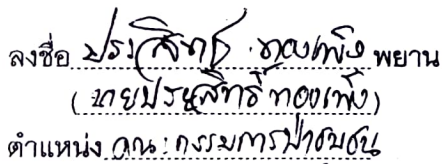 ลงชื่อ ประสิทธิ์ ทองเพ็ง พยาน
(นายประสิทธิ์ ทองเพ็ง)
ตำแหน่ง คณะกรรมการป่าชุมชน